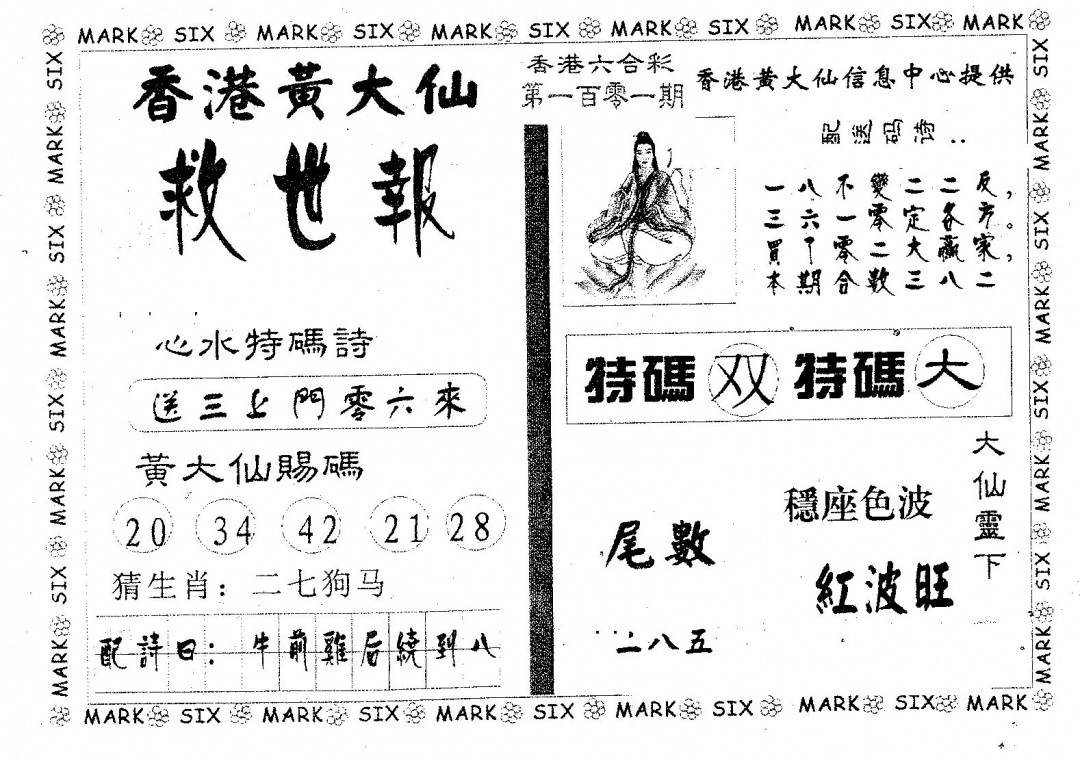 MARK SIX MARK SIX MARK SIX MARK SIX MARK SIX MARK
香港黃大仙
救世報
心水特碼詩
送三上門零六來
黃大仙賜碼
20 34 42 21 28
猜生肖：二七狗马
配詩曰：牛前雞后繞到八
香港六合彩
第一百零一期
香港黄大仙信息中心提供
配送码诗：
一八不變二二反，
三六一零定各方。
買丅零二大贏家，
本期合数三八二
特碼双 特碼大
大仙靈下
穩座色波
紅波旺
尾數
二八五
MARK SIX MARK SIX MARK SIX MARK SIX MARK SIX MARK
SIX MARK SIX MARK SIX MARK SIX MARK
SIX MARK SIX MARK SIX MARK SIX MARK